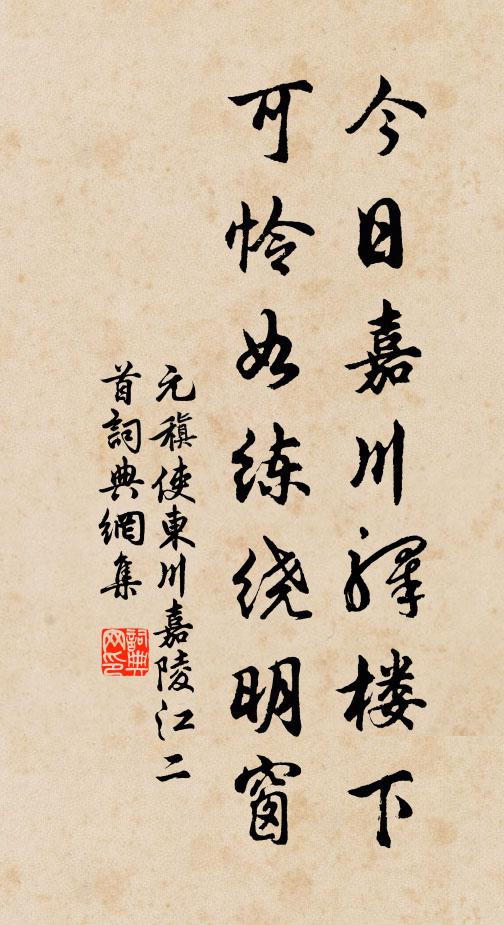 今日嘉川驛楼下
可怜如练绕明窗
元稹使東川嘉陵江二
首詞典網集
詞典
网印